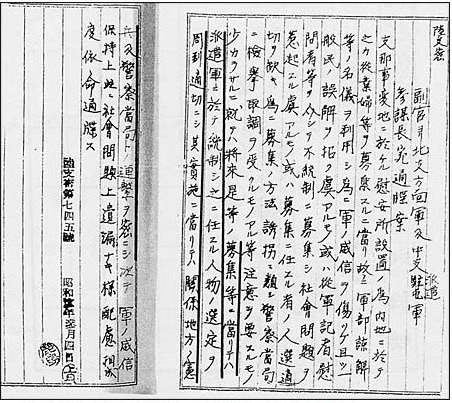 陸支密
副官ヨリ北支方面軍及中支派遣軍
参謀長宛通牒案
支那事變地ニ於ケル慰安所設置ノ為内地ニ於テ
之カ從業婦等ヲ募集スルニ當リ故ラニ軍部諒解
等ノ名儀ヲ利用シ為ニ軍ノ威信ヲ傷ツケ且ツ一
般民ノ誤解ヲ招ク虞アルモノ或ハ從軍記者慰
問者等ヲ介シテ不統制ニ募集シ社會問題ヲ
惹起スル虞アルモノ或ハ募集ニ任スル者ノ人選適
切ヲ欠キ為ニ募集ノ方法誘拐ニ類シ警察當局
ニ檢擧取調ヲ受クルモノアル等注意ヲ要スルモノ
少カラサルニ就テハ将来是等ノ募集等ニ當リテハ
派遣軍ニ於テ統制シ之ニ任スル人物ノ選定ヲ
周到適切ニシ其實施ニ當リテハ関係地方ノ憲
兵及警察當局トノ連繋ヲ密ニシ以テ軍ノ威信
保持上並ニ社會問題上遺漏ナキ様配慮相成
度依命通牒ス
陸支密第七四五號 昭和拾参年参月四日